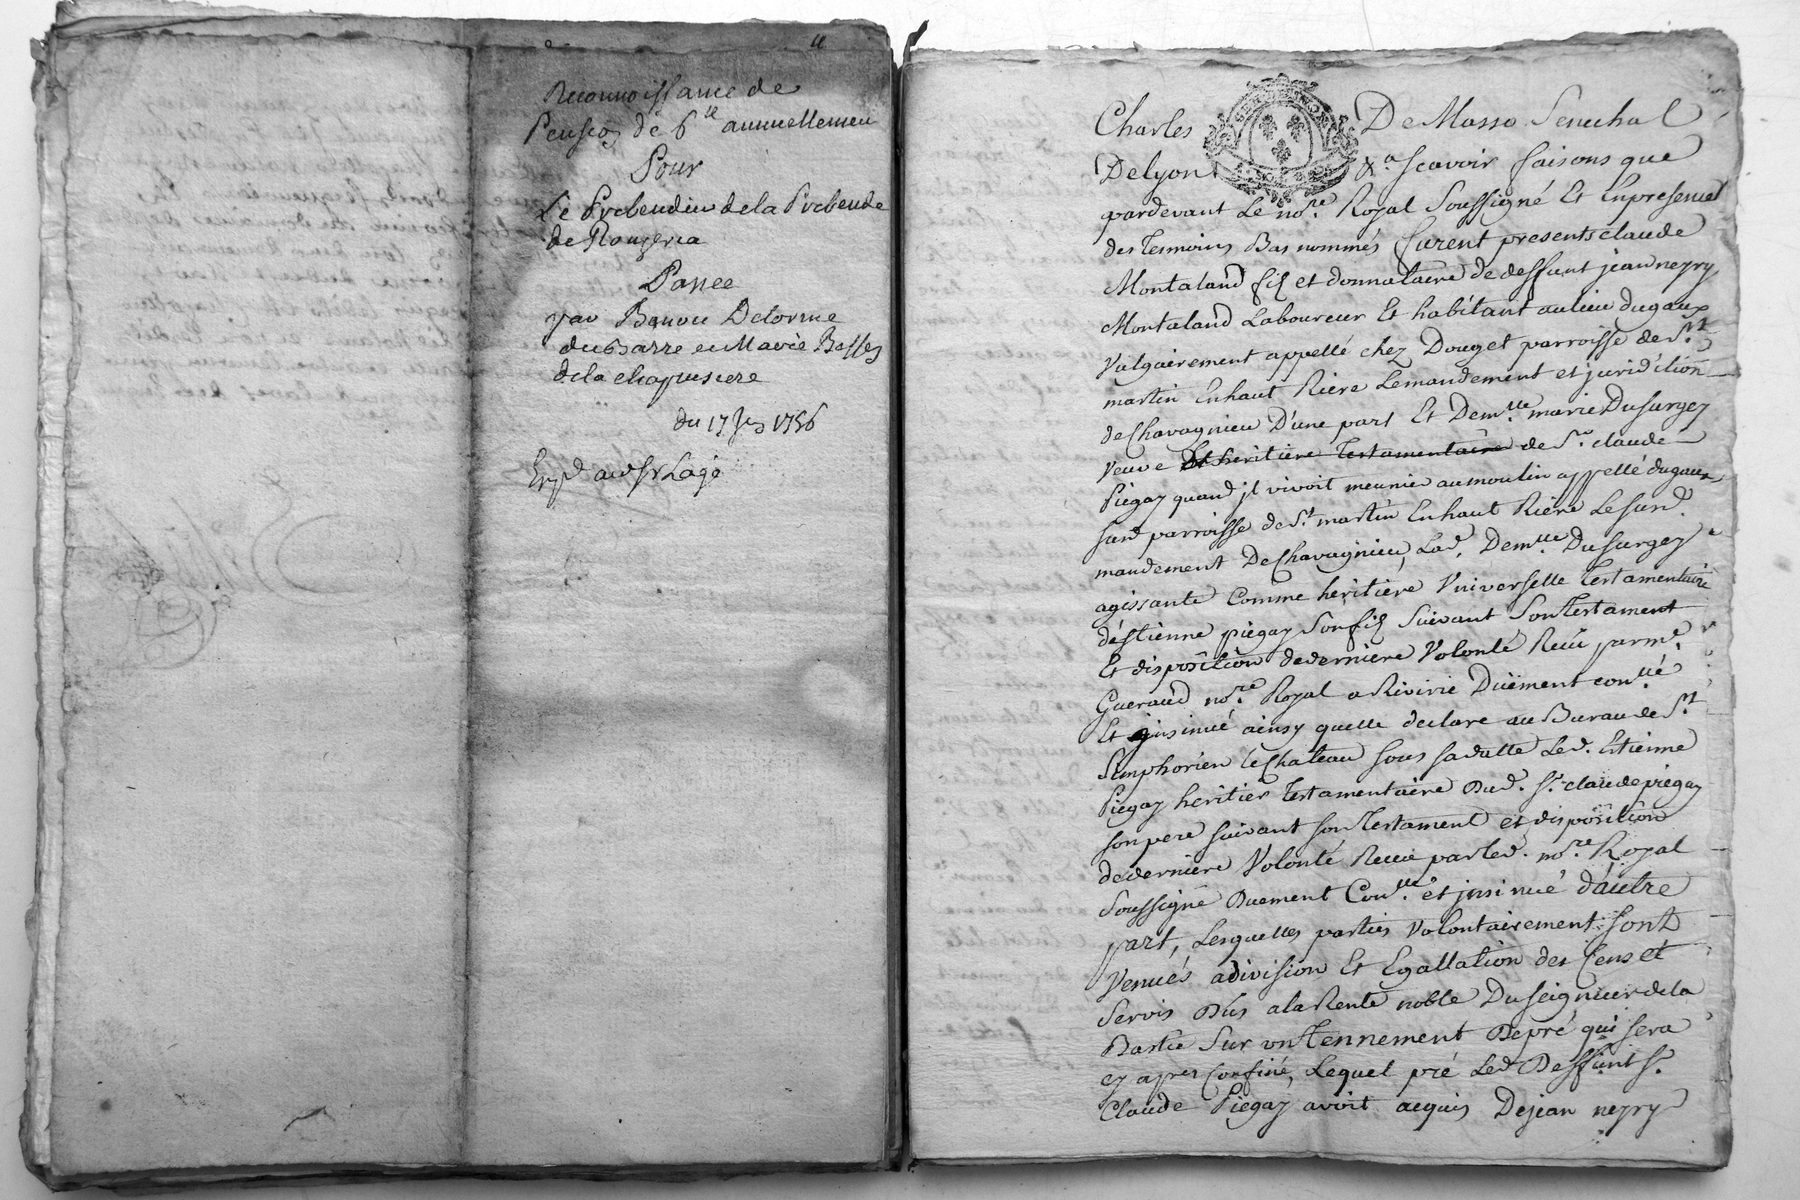 Reconnoissance de
Pension de 6ᵗᵉ annuellement
Pour
Le Prebendier de la Prebende
de Rouzeria
Passee
par Benoit Delorme
du Barre et Marie Basses
de la chapuisiere
du 17 1756
Expᵈ
Charles De Masso Senechal
De lyon &ᵃ scavoir faisons que
pardevant Le noʳᵉ Royal Soussigné Et Enpresence
des Tesmoins Bas nommés furent presents claude
Montaland fils et donnataire de deffunt jean neyry
Montaland Laboureur Et habitant au lieu dugaux
Vulgairement appellé chez Douget parroisse de Sᵗ
martin Enhaut Riere Lemandement et juridition
de Chavagnieu D'une part Et Demˡˡᵉ marie Dusurgey
Veuve Et heritiere Testamentaire de Sʳ claude
Piegay quand jl vivoit meunier aumoulin appellé dugaux
susᵈ parroisse de Sᵗ martin Enhaut Riere Le susᵈ
mandement De Chavagnieu, Ladᵉ Demˡˡᵉ Dusurgey
agissante Comme heritiere Vniverselle Testamentaire
déstienne piegay Son fils Suivant Son Testament
Et disposition de derniere Volonté Reçu par mᵉ
Gueraud noʳᵉ Royal a Riverie Düement conᵘˡᵉ
Et jnsinué ainsy quelle declare au Bureau de Sᵗ
Simphorien le Chateau sous sa datte Ledᵗ Estienne
Piegay heritier Testamentaire Dudᵗ Sʳ claude piegay
son pere suivant son Testament et disposition
de derniere Volonté Receu par ledᵗ noʳᵉ Royal
Soussigne Duement Conˡˡᵉ et jnsinué d'autre
part, Lesquelles parties Volontairement sont
Venues a division Et Egallation des Cens et
Servis Dus a la Rente noble Du seigneur de la
Bastie Sur vn Tennement De pré qui sera
cy apres Confiné, Lequel pré Ledᵗ Deffunt Sʳ
Claude Piegay avoit acquis De jean neyry